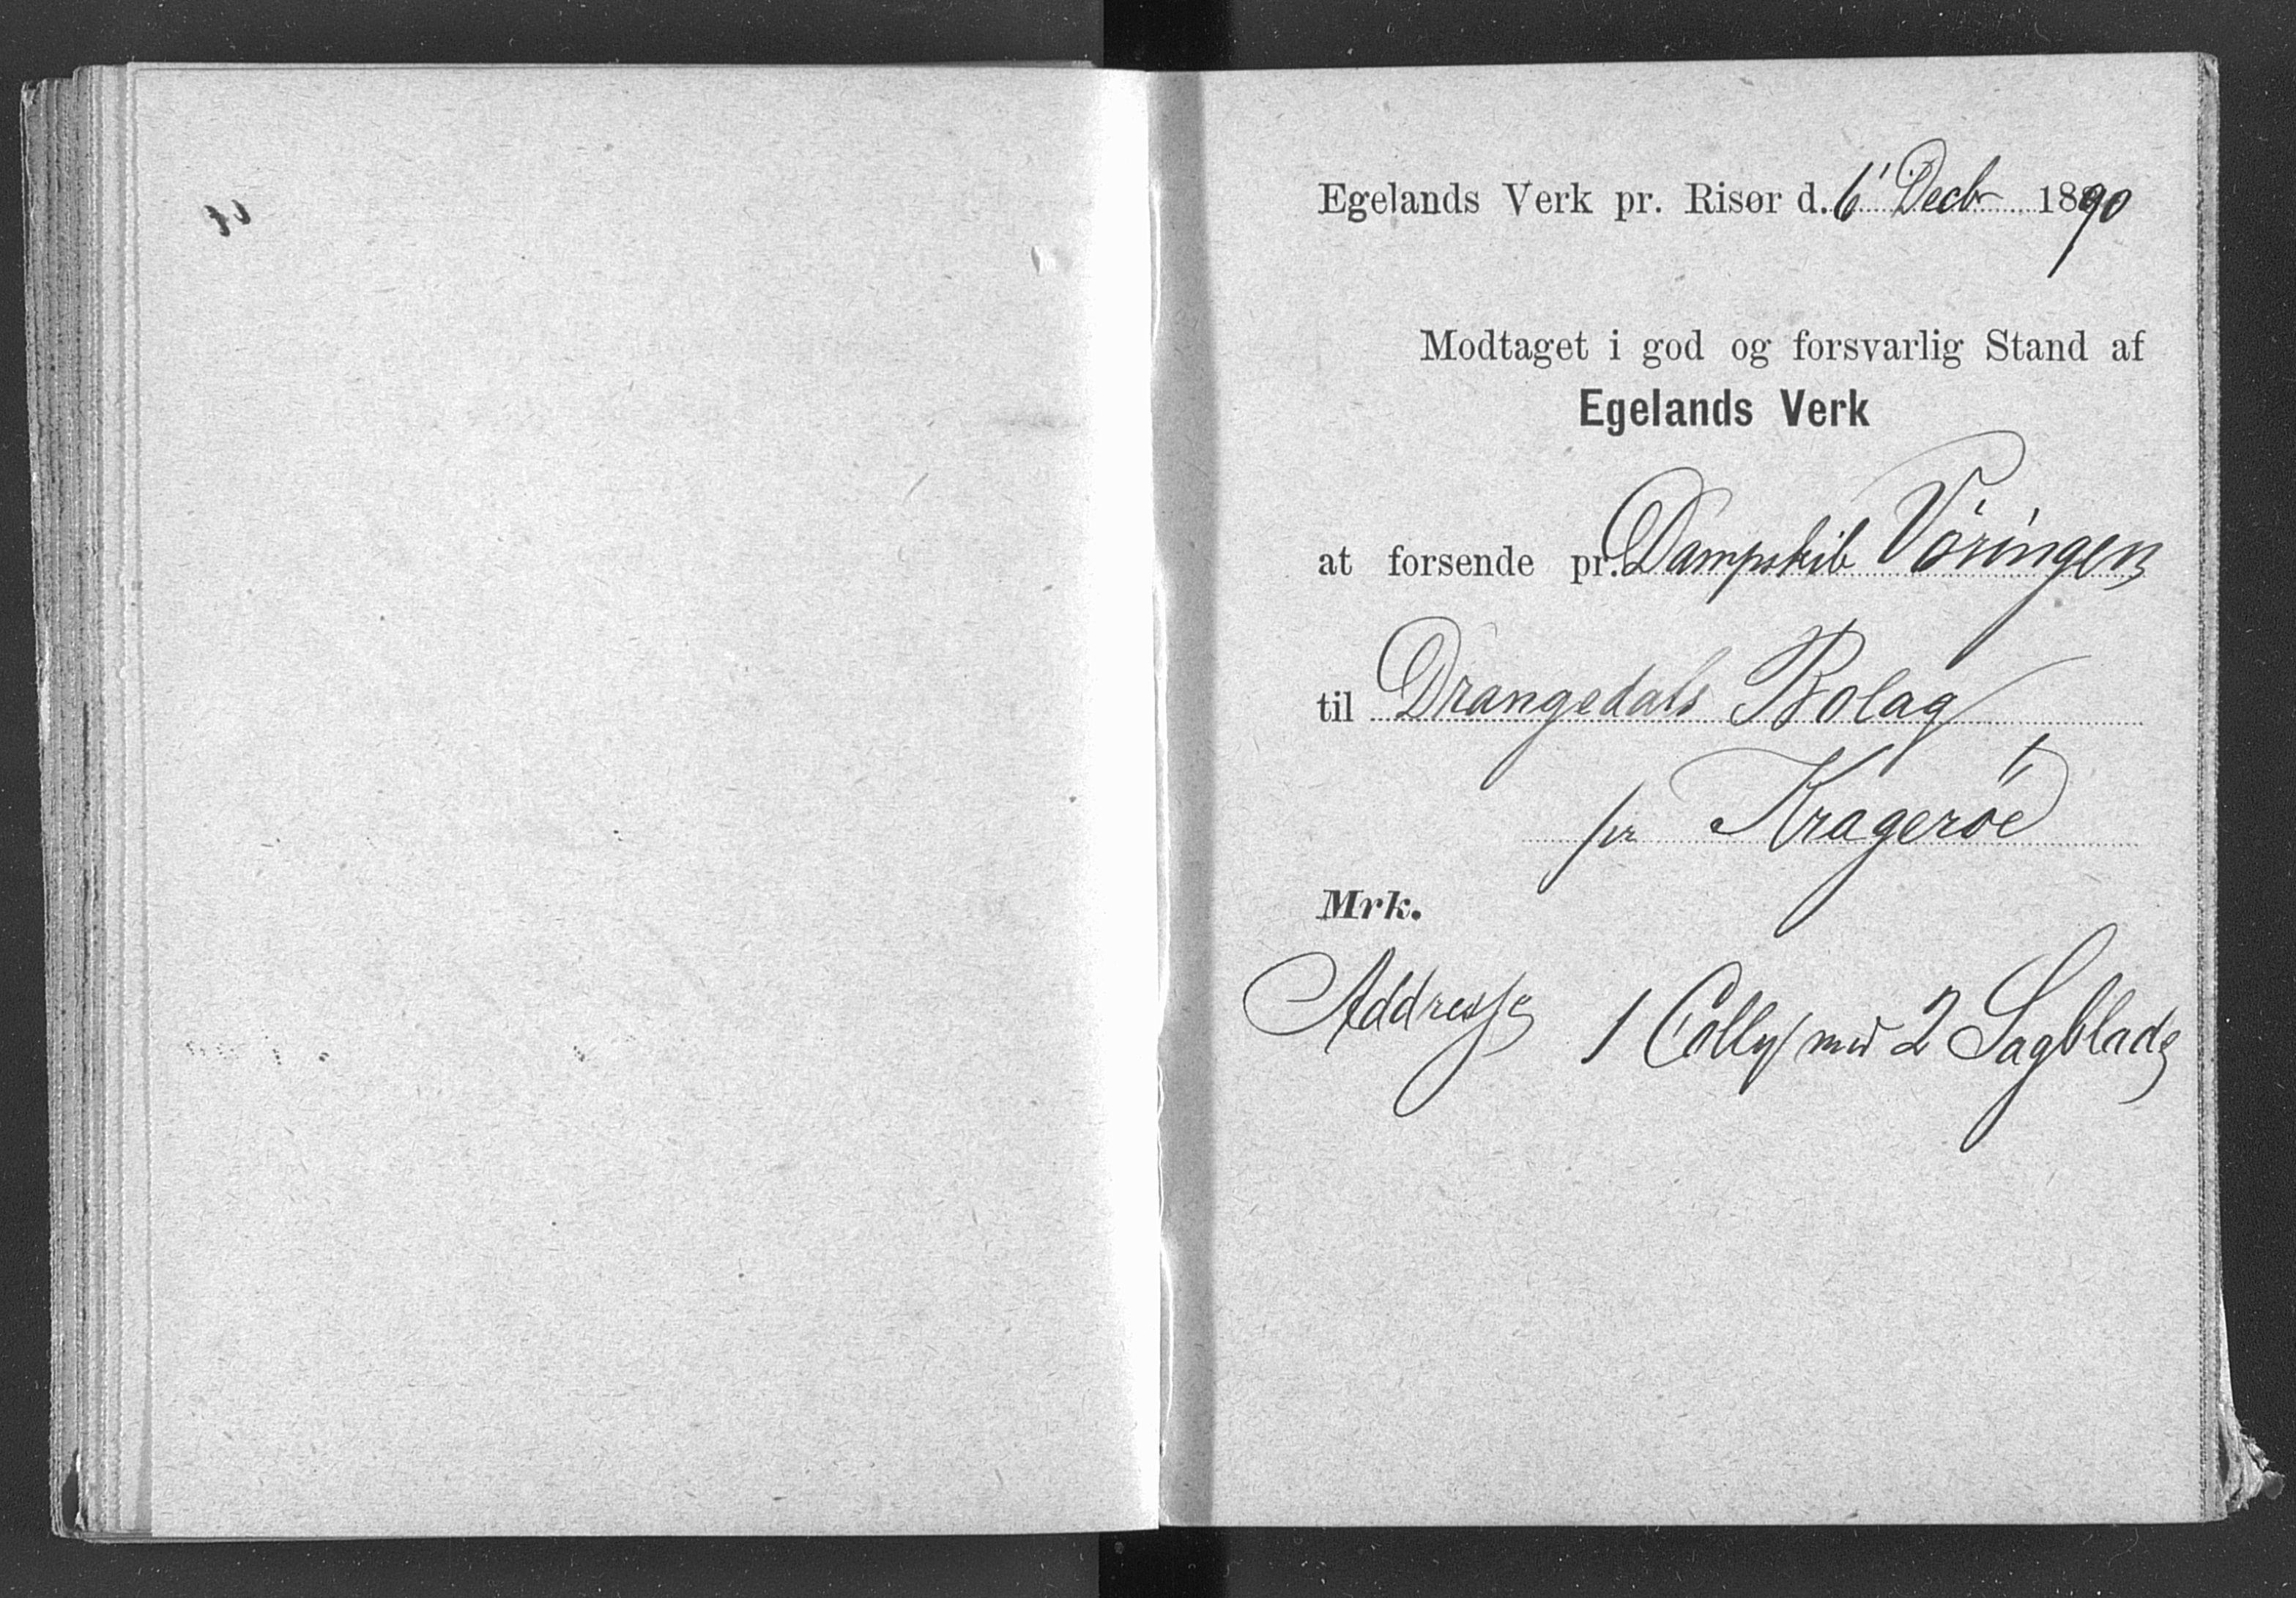 Egelands Verk pr. Risør d. 6' Decbr 1890
Modtaget i god og forsvarlig Stand af
Egelands Verk
at forsende pr. Dampskib Vöringen
til Drangedals Bolag
pr Krageröe
Mrk.
Addresse 1 Colly med 2 Sagblade